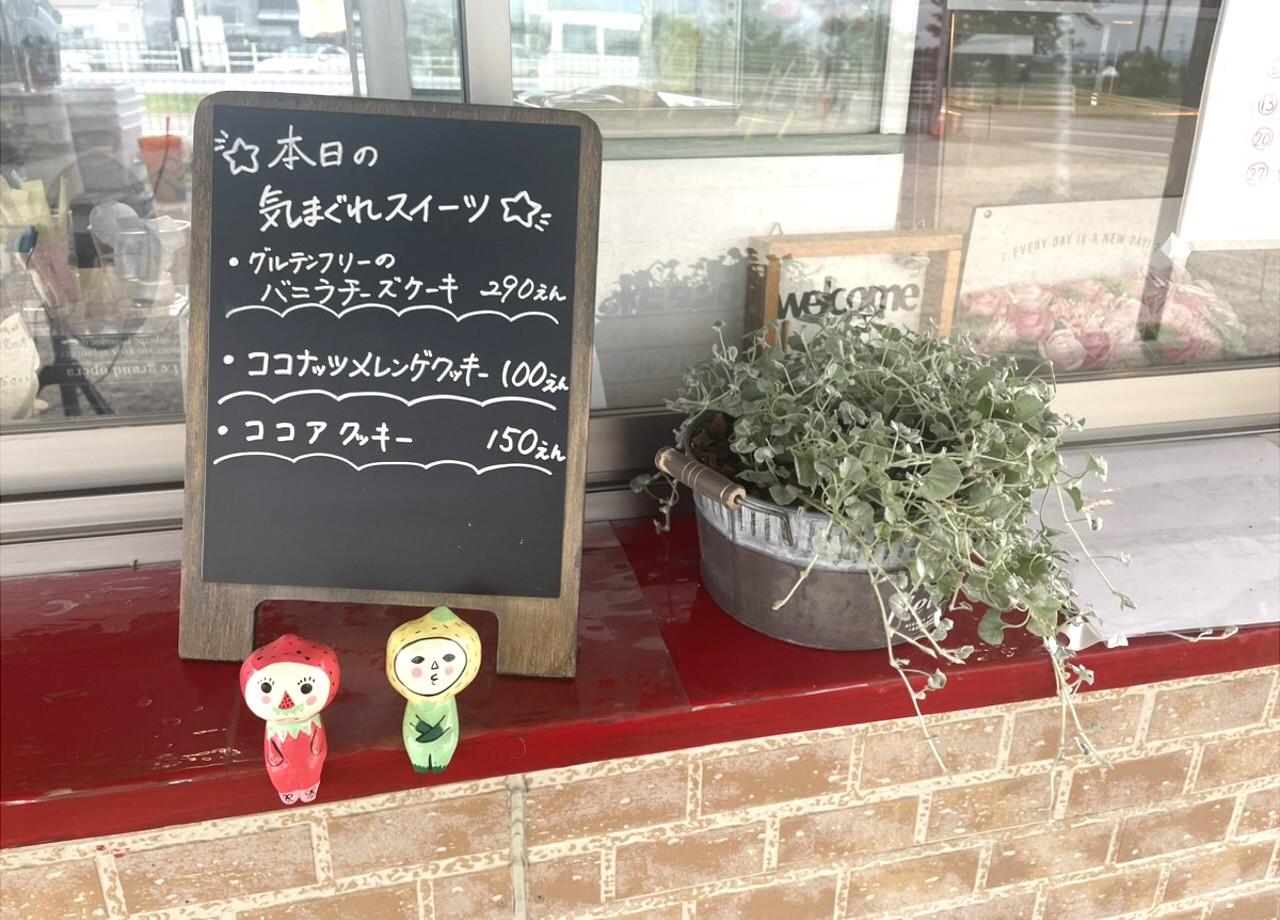 本日の
気まぐれスイーツ
・グルテンフリーの
バニラチーズケーキ 290えん
・ココナッツメレンゲクッキー 100えん
・ココアクッキー 150えん
welcome
EVERY DAY IS A NEW DAY!
13
20
27